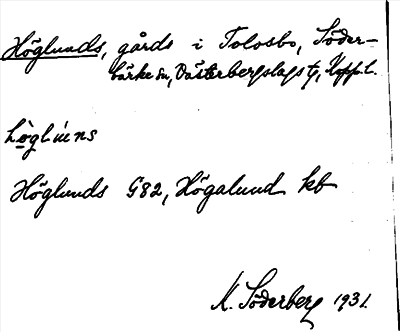 Höglunds, gårds i Tolosbo, Söder-
bärke sn, Västerbergslags tg, Kopp. l.
Höglunds G82, Högalund kb
K. Söderberg 1931.